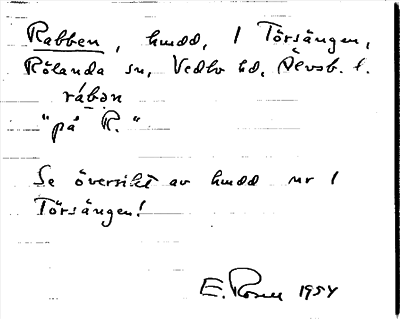 Rabben, hmdd, 1 Törsången,
Rölanda sn, Vedbo hd, Älvsb. l.
rábən
"på R."
Se översikt av hmdd nr 1
Törsången!
E. Rosell 1954